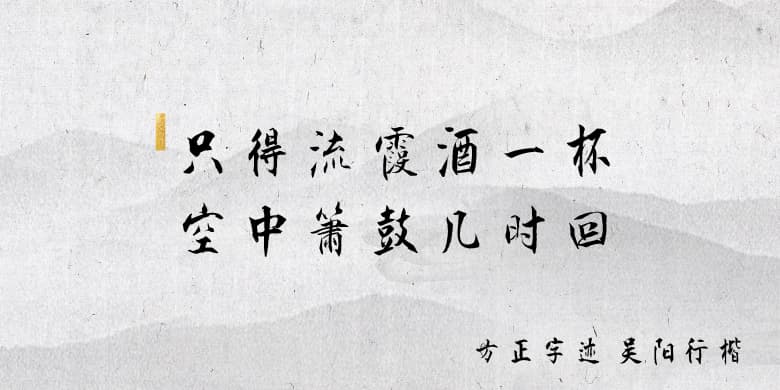 只得流霞酒一杯
空中箫鼓几时回
方正字迹 吴阳行楷